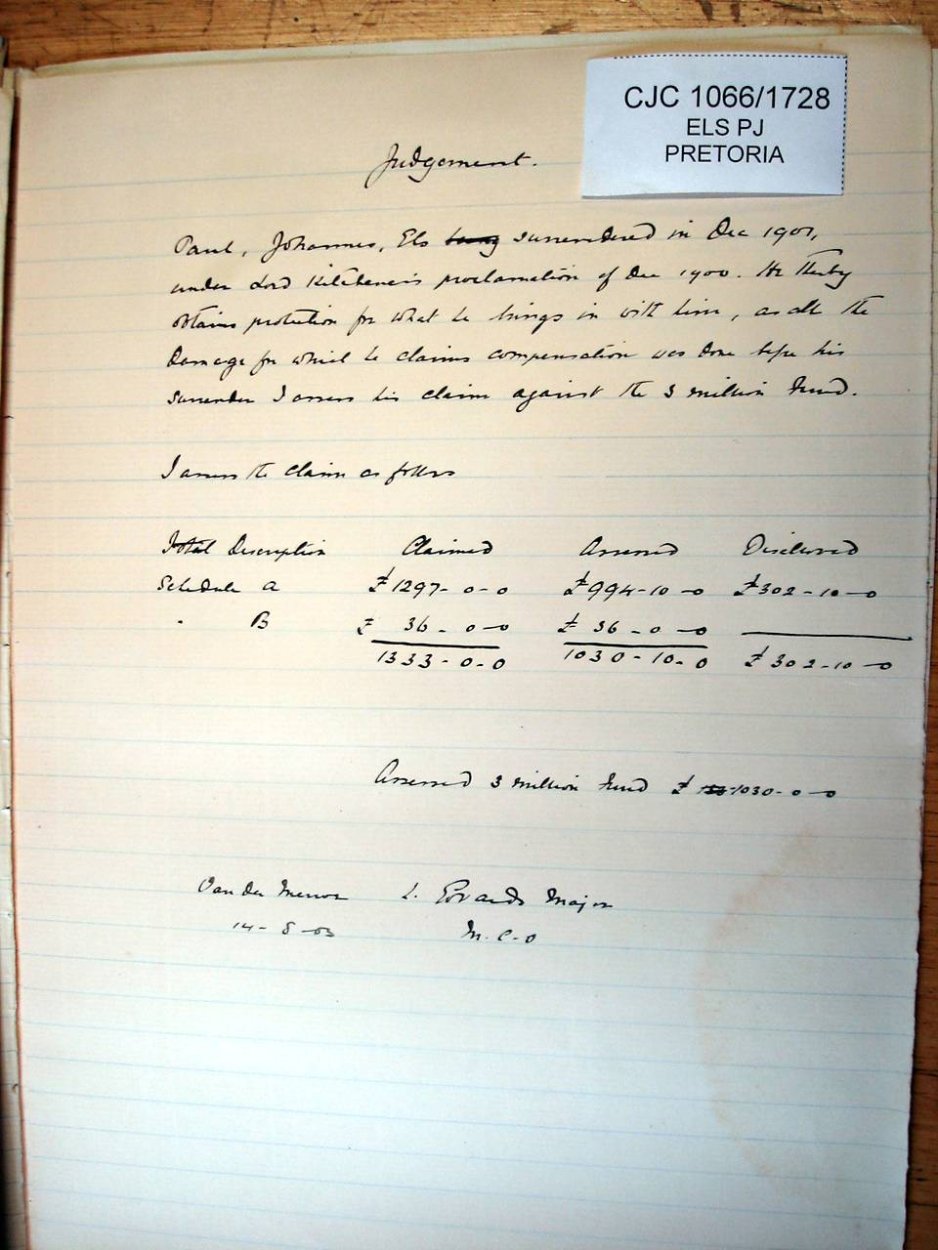 CJC 1066/1728
ELS PJ
PRETORIA
Judgement.
Paul, Johannes, Els being surrendered in Dec 1901,
under Lord Kitchener's proclamation of Dec 1900. He therby
obtains protection for what he brings in with him, as all the
Damage for which he claims compensation was done before his
surrender I assess his claim against the 3 million Fund.
I assess the claim as follows
Total Description Claimed Assessed Disallowed
Schedule A £1297-0-0 £994-10-0 £302-10-0
" B £ 36-0-0 £ 36-0-0
1333-0-0 1030-10-0 £302-10-0
Assessed 3 million Fund £ 1030-0-0
Van der Merwe L. Edwards Major
14-8-03 M.C.O